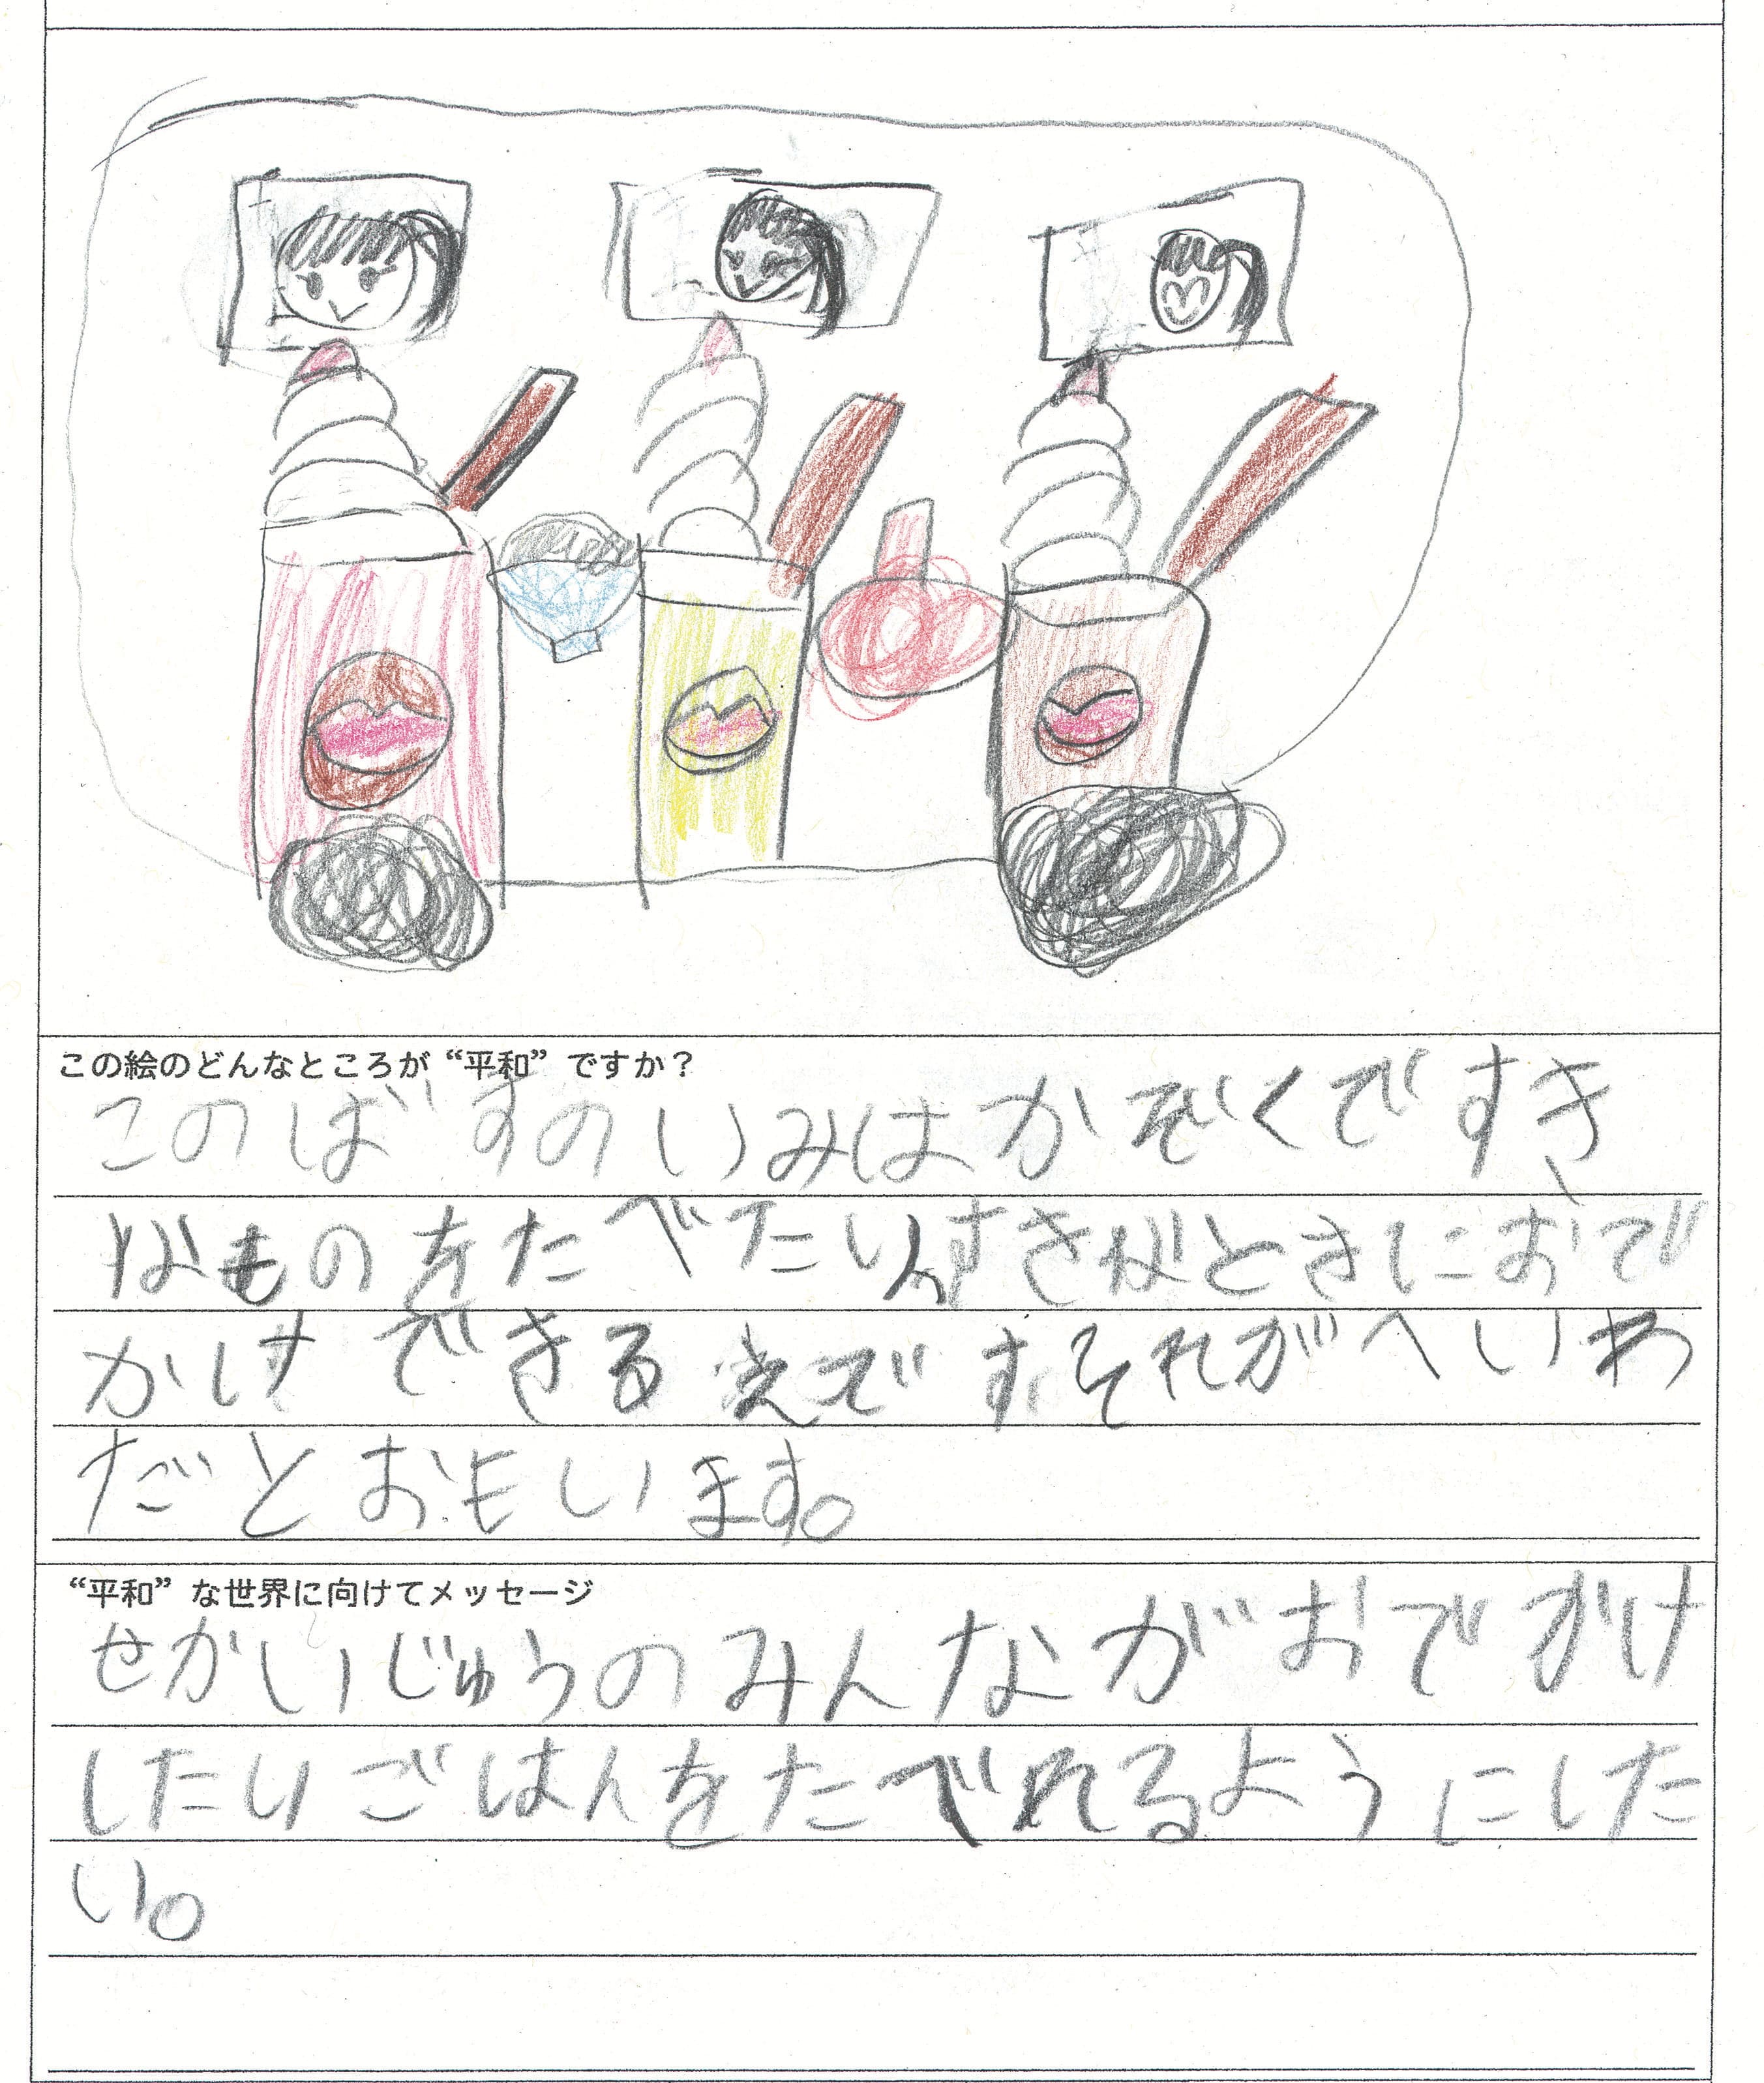 この絵のどんなところが“平和”ですか？
このばすのいみはかぞくですき
なものをたべたりすきなときにおで
かけできるえですそれがへいわ
だとおもいます。
“平和”な世界に向けてメッセージ
せかいじゅうのみんながおでがけ
したりごはんをたべれるようにした
い。